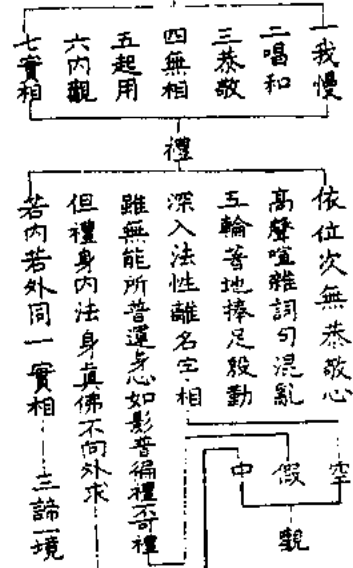 一我慢
二唱和
三恭敬
四無相
五起用
六內觀
七實相
禮
依位次無恭敬心
高聲喧雜詞句混亂
五輪著地捧足殷勤
深入法性離名字相
雖無能所普運身心如影普徧禮不可禮
但禮身內法身真佛不向外求
若內若外同一實相
三諦一境
空
假
中
觀